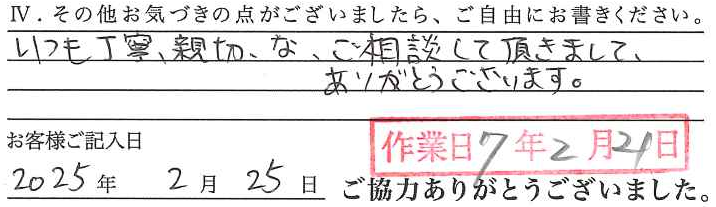 Ⅳ．その他お気づきの点がございましたら、ご自由にお書きください。
いつも丁寧、親切、な、ご相談して頂きまして、
ありがとうございます。
お客様ご記入日
作業日7年2月21日
2025年 2月 25日 ご協力ありがとうございました。